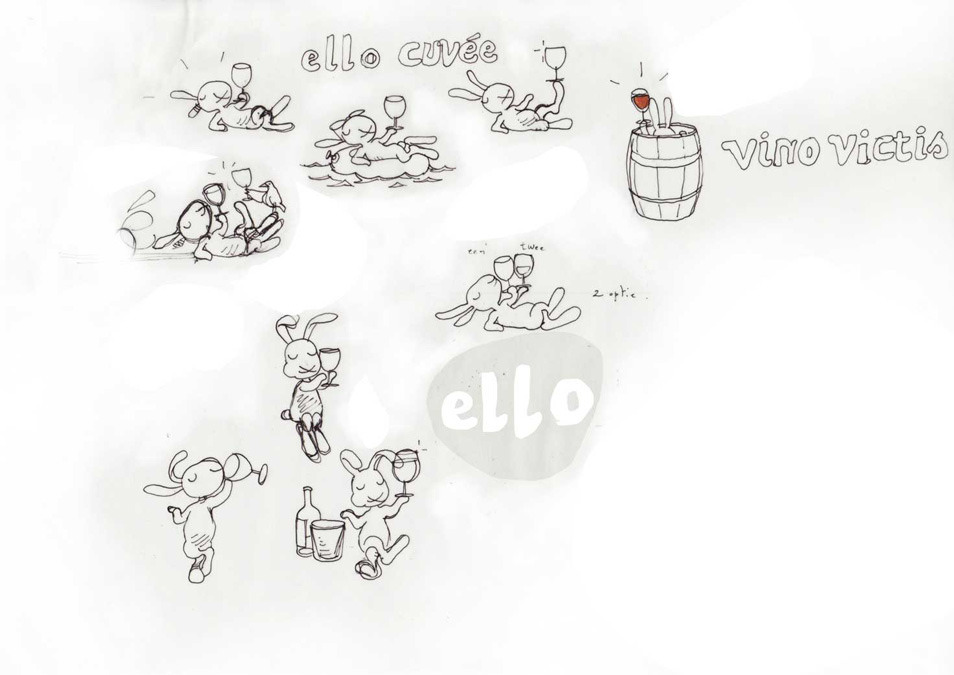 ello cuvée
vino victis
twee
2 optie.
ello